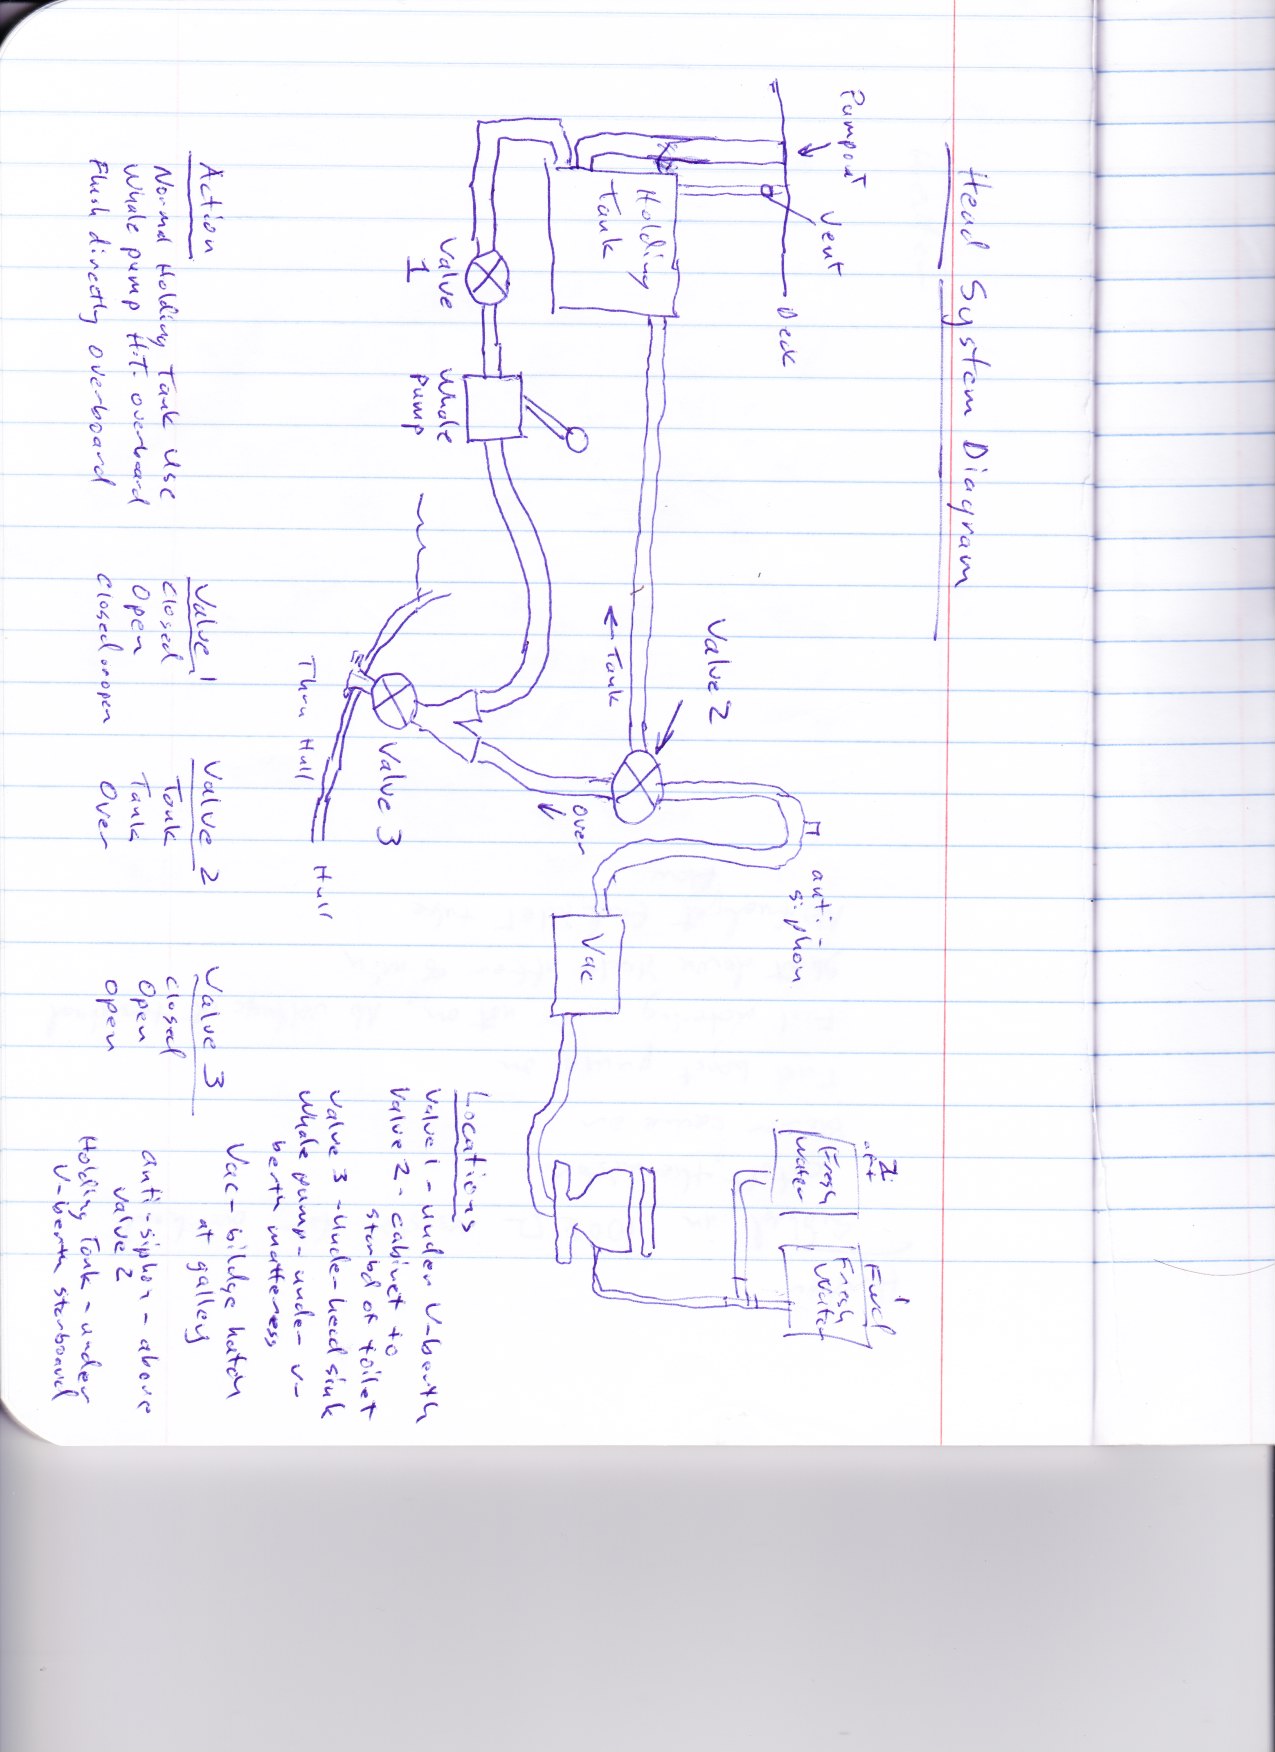 Head System Diagram
Pumpout
Vent
Deck
Holding
Tank
Valve
1
Whale
pump
Valve 2
← Tank
Over
anti-
siphon
Vac
2
aft
Fresh
Water
1
Fwd
Fresh
Water
Valve 3
Thru Hull
Hull
Locations
Valve 1 - under V-berth
Valve 2 - cabinet to
starbd of toilet
Valve 3 - under head sink
Whale pump - under v-
berth matteress
Vac - bildge hatch
at galley
anti-siphon - above
Valve 2
Holding Tank - under
V-berth starboard
Action Valve 1 Valve 2 Valve 3
Normal Holding Tank Use Closed Tank Closed
Whale pump H.T. overboard Open Tank Open
Flush directly overboard Closed or open Over Open